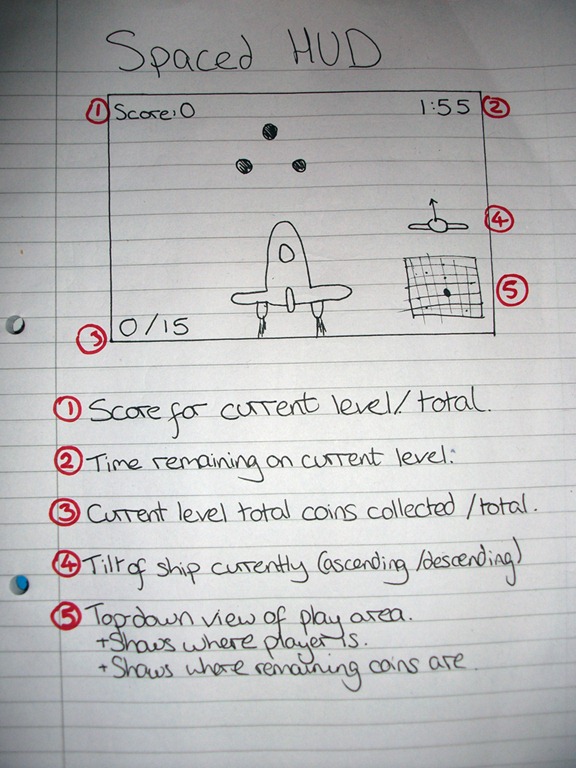 Spaced HUD
① Score: 0 1:55 ②
④
⑤
③ 0/15
① Score for current level / total.
② Time remaining on current level.
③ Current level total coins collected / total.
④ Tilt of ship currently (ascending / descending)
⑤ Top down view of play area.
+ Shows where player is.
+ Shows where remaining coins are.